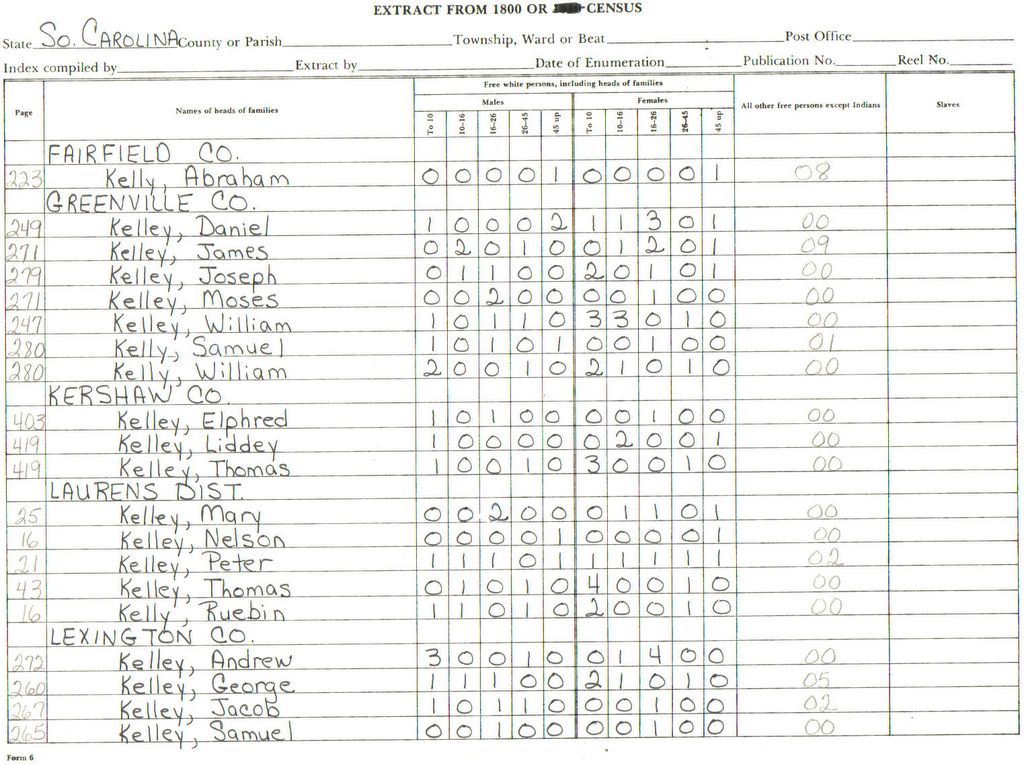 EXTRACT FROM 1800 OR CENSUS
State So. Carolina County or Parish Township, Ward or Beat Post Office
Index compiled by Extract by Date of Enumeration Publication No. Reel No.
Free white persons, including heads of families
Page Names of heads of families Males Females All other free persons except Indians Slaves
To 10 10–16 16–26 26–45 45 up To 10 10–16 16–26 26–45 45 up
FAIRFIELD CO.
223 Kelly, Abraham 0 0 0 0 1 0 0 0 0 1 08
GREENVILLE CO.
249 Kelley, Daniel 1 0 0 0 2 1 1 3 0 1 00
271 Kelley, James 0 2 0 1 0 0 1 2 0 1 09
279 Kelley, Joseph 0 1 1 0 0 2 0 1 0 1 00
271 Kelley, Moses 0 0 2 0 0 0 0 1 0 0 00
247 Kelley, William 1 0 1 1 0 3 3 0 1 0 00
280 Kelly, Samuel 1 0 1 0 1 0 0 1 0 0 01
280 Kelly, William 2 0 0 1 0 2 1 0 1 0 00
KERSHAW CO.
403 Kelley, Elphred 1 0 1 0 0 0 0 1 0 0 00
419 Kelley, Liddey 1 0 0 0 0 0 2 0 0 1 00
419 Kelley, Thomas 1 0 0 1 0 3 0 0 1 0 00
LAURENS DIST.
25 Kelley, Mary 0 0 2 0 0 0 1 1 0 1 00
16 Kelley, Nelson 0 0 0 0 1 0 0 0 0 1 00
21 Kelley, Peter 1 1 1 0 1 1 1 1 1 1 02
43 Kelley, Thomas 0 1 0 1 0 4 0 0 1 0 00
16 Kelly, Ruebin 1 1 0 1 0 2 0 0 1 0 00
LEXINGTON CO.
272 Kelley, Andrew 3 0 0 1 0 0 1 4 0 0 00
260 Kelley, George 1 1 1 0 0 2 1 0 1 0 05
267 Kelley, Jacob 1 0 1 1 0 0 0 1 0 0 02
265 Kelley, Samuel 0 0 1 0 0 0 0 1 0 0 00
Form 6